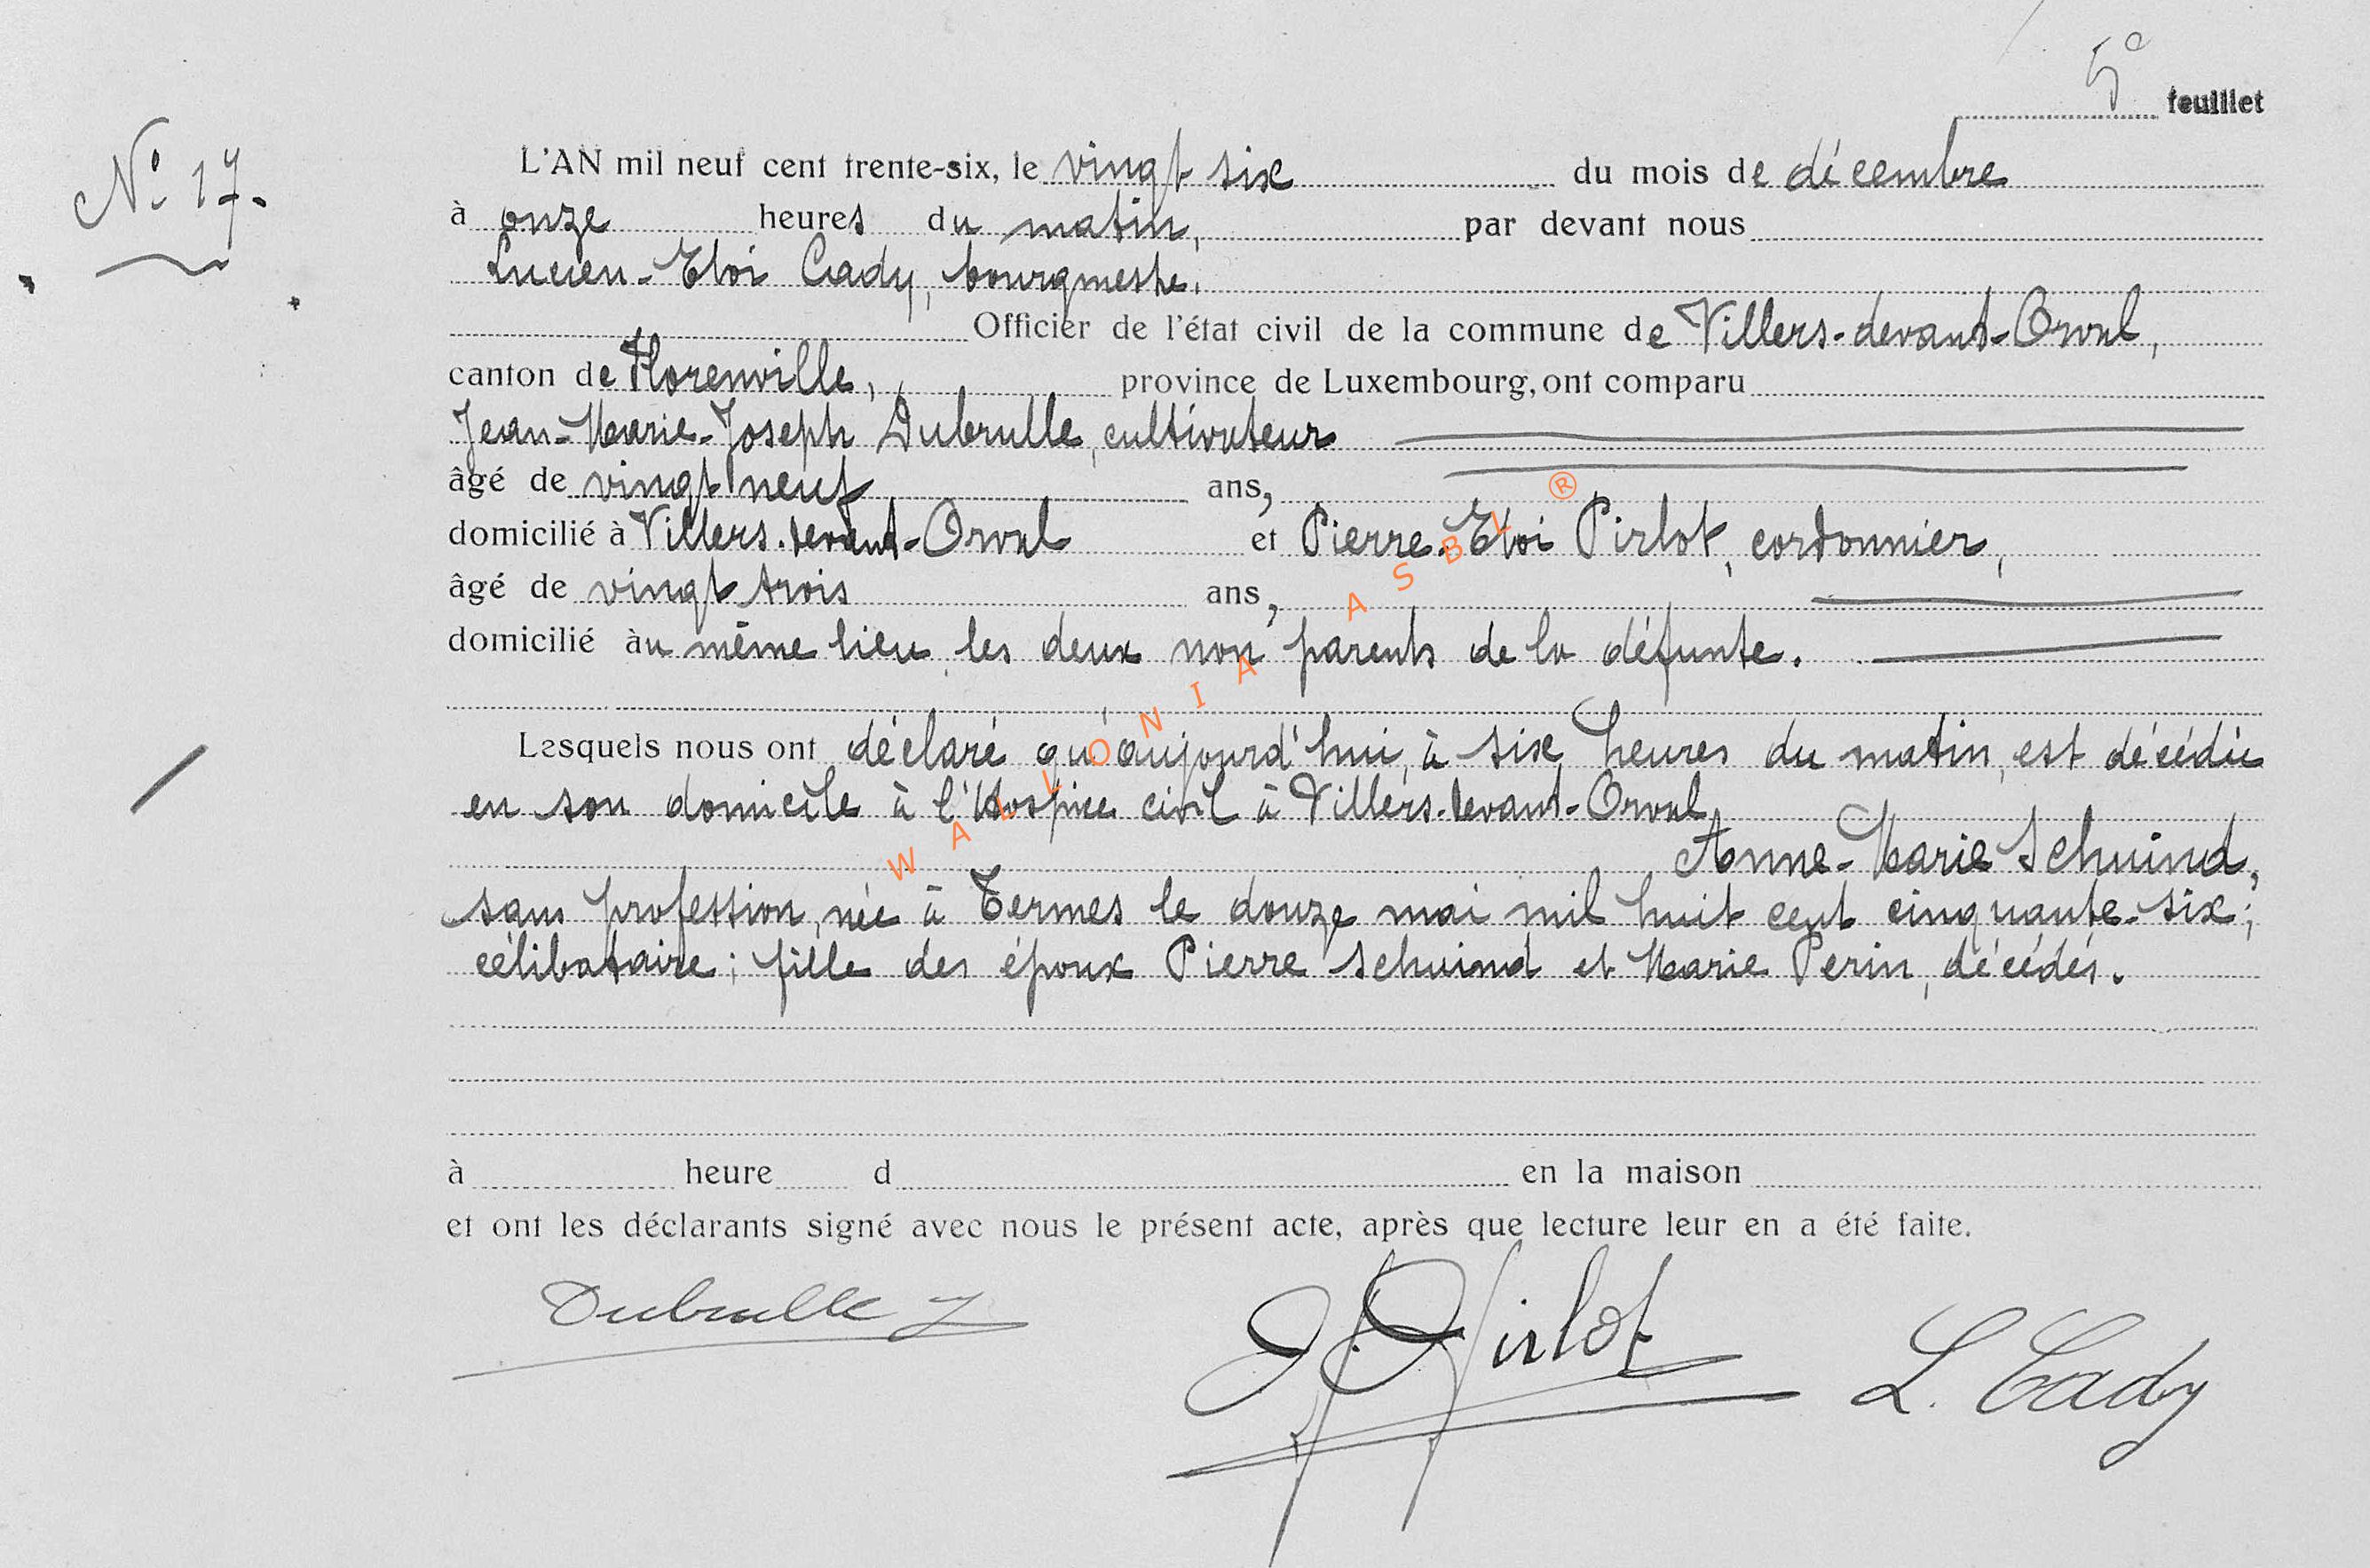 5e feuillet
N° 17.
L'AN mil neuf cent trente-six, le vingt six du mois de décembre
à onze heures du matin, par devant nous
Lucien-Eloi Cady, bourgmestre.
Officier de l'état civil de la commune de Villers-devant-Orval,
canton de Florenville, province de Luxembourg, ont comparu
Jean-Marie-Joseph Dubrulle, cultivateur
âgé de vingt neuf ans,
domicilié à Villers-devant-Orval et Pierre-Eloi Pirlot, cordonnier,
âgé de vingt trois ans,
domicilié au même lieu, les deux non parents de la défunte.
Lesquels nous ont déclaré qu'aujourd'hui, à six heures du matin, est décédée
en son domicile à l'Hospice civil à Villers-devant-Orval
Anne-Marie Schuind,
sans profession, née à Termes le douze mai mil huit cent cinquante-six;
célibataire; fille des époux Pierre Schuind et Marie Perin, décédés.
à heure d en la maison
et ont les déclarants signé avec nous le présent acte, après que lecture leur en a été faite.
Dubrulle J
Pirlot
L. Cady
WALLONIA ASBL ®